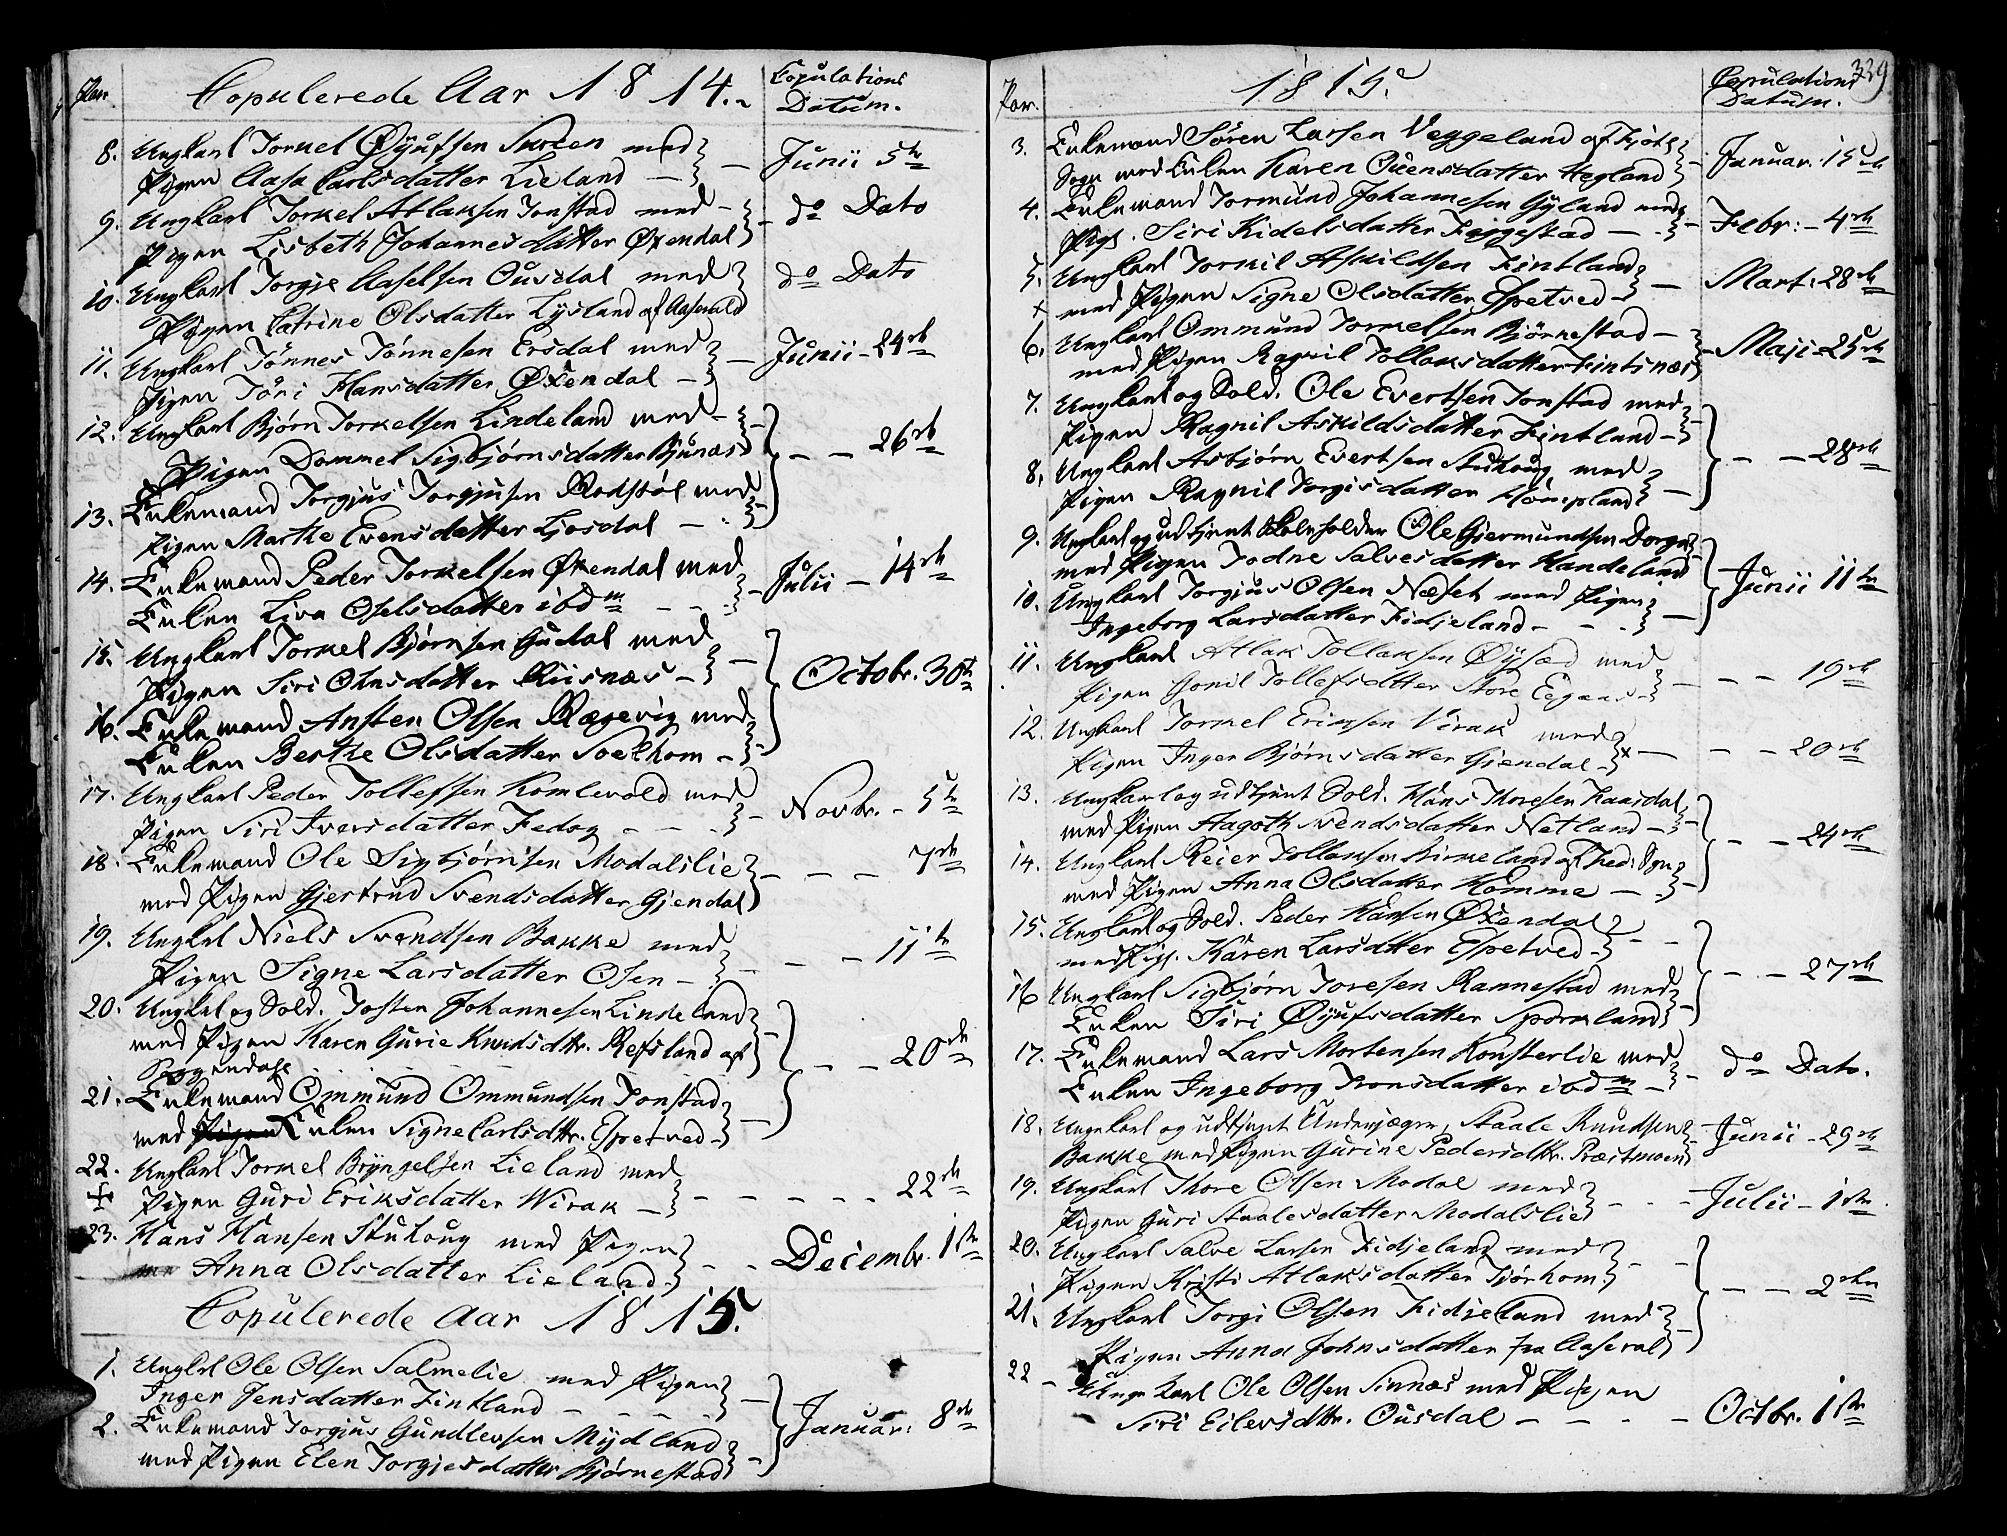 Par. Copulerede Aar 1814. Copulations
Datum.
8. Ungkarl Torkel Øÿufsen med
Pigen Aasa Carlsdatter Lieland — Junii 5te
9. Ungkarl Torkel Atlaksen Tonstad med
Pigen Lisbeth Johannesdatter Øxendal do Dato
10. Ungkarl Torgje Aaselsen Ousdal med
Pigen Catrine Olsdatter Lysland af Aaserald do Dato
11. Ungkarl Tönnes Tönnesen Ersdal med
Pigen Töri Hansdatter Øxendal — Junii - 24de
12. Ungkarl Bjørn Torkelsen Lindeland med
Pigen Dommel Sigbjørnsdatter Bjunæs — — 26de
13. Enkemand Torgjus Torgjusen Rodstøl med
Pigen Marthe Evensdatter Liosdal
14. Enkemand Peder Torkelsen Øxendal med
Enken Liva Oselsdatter ibdm Julii — 14de
15. Ungkarl Torkel Bjørnsen Gudal med
Pigen Siri Ohnsdatter Riisnæs — Octobr. 30te
16. Enkemand Ansten Olsen Rægevig med
Enken Berthe Olsdatter Soelhom
17. Ungkarl Peder Tollefsen Komlevold med
Pigen Siri Iversdatter Fedog — Novbr. - 5te
18. Enkemand Ole Sigbjørnsen Modalslie
med Pigen Gjertrud Svendsdatter Gjendal — — — 7de
19. Ungkrl Niels Svendsen Bakke med
Pigen Signe Larsdatter Osen — — — 11te
20. Ungkrl og Sold. Josten Johannesen Lindeland
med Pigen Karen Gurie Knudsdtr. Refsland af
Soggendahl — — 20de
21. Enkemand Ommund Ommundsen Tonstad
med Pigen Enken Signe Carlsdtr. Espetved
22. Ungkarl Torkel Bryngelsen Lieland med
Pigen Guri Eriksdatter Wirak — — — 22de
23. Hans Hansen Stuhoug med Pigen
Anna Olsdatter Lieland. — — Decembr. 1ste
Copulerede Aar 1815.
1. Ungkrl Ole Olsen Salmelie med Pigen
Inger Jensdatter Fintland — Januar: 8de
2. Enkemand Torgjus Gundlevsen Mydland
med Pigen Elen Torgjesdatter Bjørnestad
339
Par. 1815. Copulations
Datum.
3. Enkemand Søren Larsen Veggeland af
Sogn med Enken Karen Ovensdatter Hegland Januar. 15de
4. Enkemand Tormund Johannesen Gyland med
Pige. Siri Kidelsdatter Figgestad — Febr: - 4de
5. Ungkarl Torkil Askildsen Fintland
x med Pigen Signe Olsdatter Espetved — Mart: 28de
6. Ungkarl Ommund Torkelsen Bjørnestad —
med Pigen Ragnil Tollaksdatter Fintsnæs Maji - 25de
7. Ungkarl og Sold. Ole Evertsen Tonstad med
Pigen Ragnil Askildsdatter Fintland — — 28de
8. Ungkarl Asbjørn Evertsen Stuhoug med
Pigen Ragnil Torgisdatter Hompland
9. Ungkarl og udtjent Ole Gjermundsen Dorge
med Pigen Todne Salvesdatter Handeland Junii 11te
10. Ungkarl Torgjus Olsen Næset med Pigen
Ingeborg Larsdatter Fidjeland
11. Ungkarl Atlak Tollaksen Øysæd med
Pigen Gonil Tollefsdatter Store Eegaas — — — 19de
12. Ungkarl Torkel Eriksen Virak med
Pigen Inger Bjørnsdatter Gjendal x — — — 20de
13. Ungkarl og udtjent Sold. Hans Thoresen Haasdal
med Pigen Aagoth Svendsdatter Netland — — 24de
14. Ungkarl Reier Tollaksen Birkeland af Fed: Sgn
med Pigen Anna Olsdatter Homme
15. Ungkarl og Sold. Peder Hansen Øxendal
med Pige. Karen Larsdtter Espetved — — 27de
16 Ungkarl Sigbjørn Toresen Rannestad med
Enken Siri Øyufsdatter Sporkland
17. Enkemand Lars Mortensen Konsterlie med
Enken Ingeborg Tronsdatter ibdm — do Dato.
18. Ungekarl og udtjent Underjæger, Staale Knudsen
Bakke med Pigen Gurine Pedersdtr. Præstmoen Junii - 29de
19. Ungkarl Thore Olsen Modal med
Pigen Guri Staalesdatter Modalslie Julii - 1ste
20. Ungkarl Salve Larsen Fidjeland med
Pigen Kristi Atlaksdatter Tjørhom — — 2den
21. Ungkarl Torgi Olsen Fidjeland med
Pigen Anna Johnsdatter fra Aaseral
22 — Unge Karl Ole Olsen Sinnæs med Pigen
Siri Eilersdtr. Ousdal — — — — Octbr. 1ste